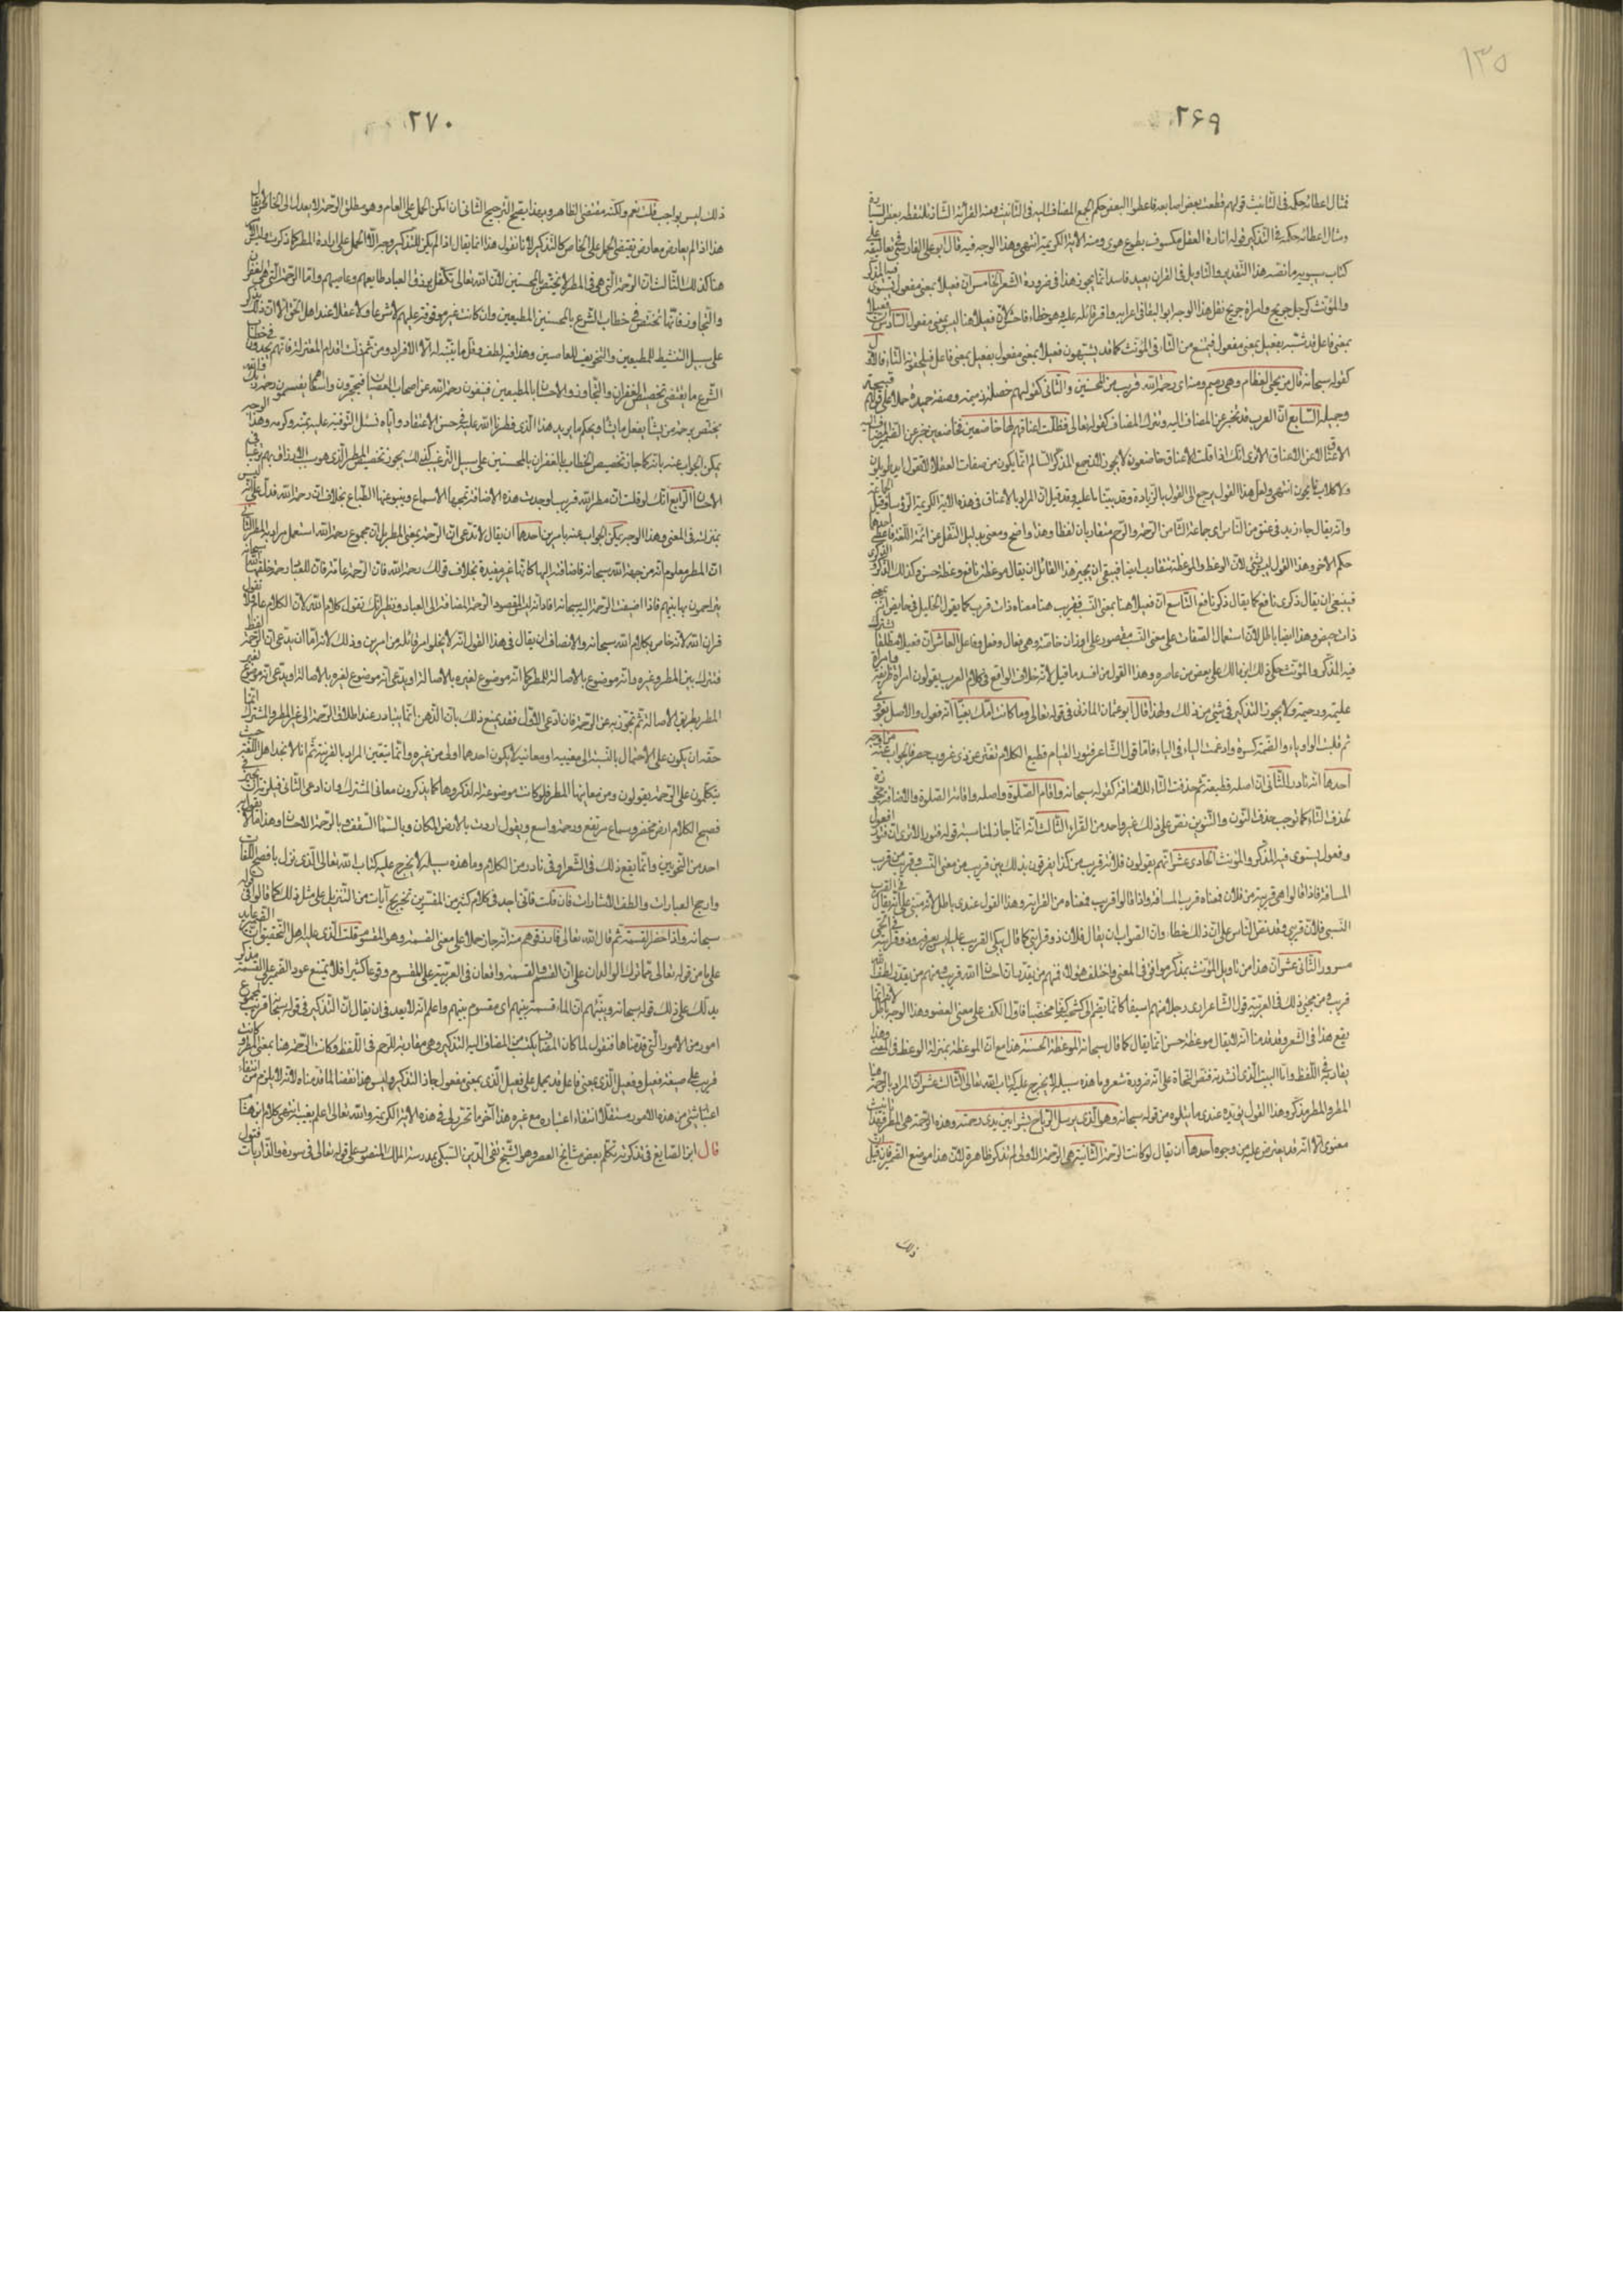 ١٣٥
٢۶٩
فمثال اعطائه حكمه فى التانيث قولهم قطعت بعض اصابعه فاعطوا البعض حكم الجمع المضاف اليه فى التانيث ومنه القراءة الشاذة تلتقطه بعض السيارة
ومثال اعطائه حكمه فى التذكير قوله انارة العقل مكسوف بطوع هوى ومنه الاية الكريمة انتهى وهذا الوجه فيه قال ابو على الفارسى فى تعاليقه على
كتاب سيبويه ما نصه هذا التقدير والتاويل فى القران بعيد فاسد انما يجوز هذا فى ضرورة الشعر الخامس ان فعيلا بمعنى مفعول يستوى فيه المذكر
والمؤنث كرجل جريح وامراة جريح نقل هذا الوجه ابو البقا فى اعرابه واقر قائله عليه وهو خطاء فاحش لان فعيلا هنا ليس بمعنى مفعول السادس ان فعيلا
بمعنى فاعل قد شبه بفعيل بمعنى مفعول فيمنع من التاء فى المؤنث كما قد يشبهون فعيلا بمعنى مفعول بفعيل بمعنى فاعل فيلحقونه التاء فالاول
كقوله سبحانه قال من يحيى العظام وهى رميم ومنه ان رحمة الله قريب من المحسنين والثانى كقولهم خصلة ذميمة وصفة حميدة حملا على قولهم قبيحة
وجميلة السابع ان العرب قد تخبر عن المضاف اليه وتترك المضاف كقوله تعالى فظلت اعناقهم لها خاضعين فخاضعين خبر عن الضمير المضاف اليه
الاعناق لا عن الاعناق الا ترى انك اذا قلت الاعناق خاضعون لا يجوز لان جمع المذكر السالم انما يكون من صفات العقلاء لا تقول ايد طويلون
ولا كلاب نابحون انتهى ولعل هذا القول يرجع الى القول بالزيادة وقد بينا ما عليه وقد قيل ان المراد بالاعناق فى هذه الاية الكريمة الرؤساء وقيل الجماعة
وانه يقال جاء زيد فى عنق من الناس اى جماعة الثامن الرحمة والرحم متقاربان لفظا وهذا واضح ومعنى بدليل النقل عن ائمة اللغة فاعطى احدهما
حكم الاخر وهذا القول ليس بشىء لان الوعظ والموعظة تتقارب ايضا فينبغى ان يجيز هذا القائل ان يقال موعظة نافع وعظة حسن وكذلك الذكر والذكرى
فينبغى ان يقال ذكرى نافع كما يقال ذكر نافع التاسع ان فعيلا هنا بمعنى النسب فقريب هنا معناه ذات قريب كما يقول الخليل فى حايض انه بمعنى
ذات حيض وهذا ايضا باطل لان استعمال الصفات على معنى النسب مقصور على اوزان خاصة وهى فعال وفعل وفاعل العاشر ان فعيلا مطلقا يشترك
فيه المذكر والمؤنث حكى ذلك ابن مالك على بعض من عاصره وهذا القول من افسد ما قيل لانه خلاف الواقع فى كلام العرب يقولون امراة ظريفة وامراة
عليمة ورحيمة ولا يجوز التذكير فى شىء من ذلك ولهذا قال ابو عثمان المازنى فى قوله تعالى وما كانت امك بغيا انه فعول والاصل بغوى
ثم قلبت الواو ياء والضمة كسرة وادغمت الياء فى الياء فاما قول الشاعر فتور القيام قطيع الكلام تفتر عن ذى غروب خصر فالجواب عنه من اوجه
احدها انه نادر الثانى ان اصله قطيعة ثم حذفت التاء للاضافة كقوله سبحانه واقام الصلوة واصله واقامة الصلوة والاضافة مجوزة
لحذف التاء كما توجب حذف النون والتنوين نص على ذلك غير واحد من القراء الثالث انه انما جاز لمناسبة قوله فتور الا ترى ان فتور فعول
وفعول يستوى فيه المذكر والمؤنث الحادى عشر انهم يقولون فلانة قريب من كذا يفرقون بذلك بين قريب من معنى النسب وقريب من قرب
المسافة فاذا قالوا هى قريبة من فلان فمعناه قرب المسافة واذا قالوا قريب فمعناه من القرابة وهذا القول عندى باطل لانه مبنى على انه يقال فى القرب
النسبى فلان قريبى وقد نص الناس على ان ذلك خطاء وان الصواب ان يقال فلان ذو قرابتى كما قال يبكى القريب عليه ليس يعرفه وذو قرابته فى الحى
مسرور الثانى عشر ان هذا من تاويل المؤنث بمذكر موافق فى المعنى واختلف هؤلاء فمنهم من يقدر ان احسان الله قريب ومنهم من يقدر لطف الله
قريب ومن مجئ ذلك فى العربية قول الشاعر ارى رجلا منهم اسيفا كانما يضم الى كشحيه كفا مخضبا فاول الكف على معنى العضو وهذا الوجه باطل لانه انما
يقع هذا فى الشعر وقد قدمنا انه لا يقال موعظة حسن انما يقال كما قال سبحانه الموعظة الحسنة هذا مع ان الموعظة بمنزلة الوعظ فى المعنى وهذا
يقاربه فى اللفظ واما البيت الذى انشدته فنص النحاة على انه ضرورة شعر وما هذه سبيله لا يخرج عليه كتاب الله تعالى الثالث عشر ان المراد بالرحمة هنا
المطر والمطر مذكر وهذا القول يؤيده عندى ما يتلوه من قوله سبحانه وهو الذى يرسل الرياح بشرا بين يدى رحمته وهذه الرحمة هى المطر فهذا تانيث
معنوى الا انه قد يعترض عليه من وجوه احدها ان يقال لو كانت الرحمة الثانية هى الرحمة الاولى لم تذكر ظاهرة لان هذا موضع الضمير فان قيل
ذلك
٢٧٠
ذلك ليس بواجب قلت نعم ولكنه مقتضى الظاهر وبهذا يصح الترجيح الثانى ان امكن الحمل على العام وهو مطلق الرحمة لا يعدل الى الخاص لا يقال
هذا اذا لم يعارض معارض يقتضى الحمل على الخاص كالتذكير لانا نقول هذا انما يقال اذا لم يكن للتذكير وجه الا الحمل على ارادة المطر كما ذكرت وليس الامر
هنا كذلك الثالث ان الرحمة التى هى المطر لا تختص بالمحسنين لان الله تعالى تكفل برزق العباد طايعهم وعاصيهم واما الرحمة التى هى الغفران
والتجاوز فانما تختص فى خطاب الشرع بالمحسنين المطيعين وان كانت غير موقوفة عليهم لا شرعا ولا عقلا عند اهل الحق الا ان ذلك يذكر
على سبيل التنشيط للمطيعين والتخويف للعاصين وهذا فيه لطف وقل ما يتنبه له الا الافراد ومن ثم زلت اقدام المعتزلة فانهم يجدون فى خطاب
الشرع ما يقتضى تخصيص الغفران والتجاوز والاحسان بالمطيعين فينفون رحمة الله عن اصحاب العصيان فيحجرون واسعا اهم يقسمون رحمة ربك فالله
يختص برحمته من يشاء يفعل ما يشاء ويحكم ما يريد هذا الذى فطرنا الله عليه فى حسن الاعتقاد واياه نسئل التوفيق عليه بمنه وكرمه وهذا الوجه
يمكن الجواب عنه بانه كما جاز تخصيص الخطاب بالغفران بالمحسنين على سبيل الترغيب كذلك يجوز تخصيص المطر الذى هو سبب الارزاق بهم ترغيبا فى
الاحسان الرابع انك لو قلت ان مطر الله قريب لوجدت هذه الاضافة تمجها الاسماع وينبو عنها الطباع بخلاف ان رحمة الله فدل على انه ليس
بمنزلته فى المعنى وهذا الوجه يمكن الجواب عنه بامرين احدهما ان يقال لا ندعى ان الرحمة بمعنى المطر بل ان مجموع رحمة الله استعمل مرادا به المطر الثانى
ان المطر معلوم انه من جهة الله سبحانه فاضافته اليه كانها غير مفيدة بخلاف قولك رحمة الله فان الرحمة عامة فان للعباد رحمة خلقها الله سبحانه
يتراحمون بها بينهم فاذا اضيفت الرحمة اليه سبحانه افاد انه ليس المقصود الرحمة المضافة الى العباد ونظيره انك تقول كلام الله لان الكلام عام ولا تقول
قران الله لانه خاص بكلام الله سبحانه والانصاف ان يقال فى هذا القول انه لا يخلو امر قائله من امرين وذلك لانه اما ان يدعى ان لفظ الرحمة
مشترك بين المطر وغيره وانه موضوع بالاصالة للمطر كما انه موضوع لغيره بالاصالة او يدعى انه موضوع لغيره بالاصالة او يدعى انه موضوع لغير
المطر بطريق الاصالة ثم تجوز به عن الرحمة فان ادعى الاول فقد يمنع ذلك بان الذهن انما يتبادر عند اطلاق الرحمة الى غير المطر والمشترك انما
حقه ان يكون على الاحتمال بالنسبة الى معنييه او معانيه لا يكون احدهما اولى من غيره وانما يتعين المراد بالقرينة ثم انا لا نجد اهل اللغة حيث
يتكلمون على الرحمة يقولون ومن معانيها المطر فلو كانت موضوعة له لذكروها كما يذكرون معانى المشترك وان ادعى الثانى فيلزمه ان يجيز فى
فصيح الكلام ارض مخضر وسماء مرتفع ورحمة واسع ويقول اردت بالارض المكان وبالسماء السقف وبالرحمة الاحسان وهذا لا يقوله
احد من النحويين وانما يقع ذلك فى الشعر او فى نادر من الكلام وما هذه سبيله لا يخرج عليه كتاب الله تعالى الذى نزل بافصح اللغات
وارجح العبارات والطف الاشارات فان قلت فانى اجد فى كلام كثير من المفسرين تخريج آيات من التنزيل على مثل ذلك كما قالوا فى قوله
سبحانه واذا حضر القسمة ثم قال الله تعالى فارزقوهم منه انه جاز حملا على معنى القسمة وهو المقسوم قلت الذى عليه اهل التحقيق ان الضمير عايد
على ما من قوله تعالى مما ترك الوالدان على ان القسم والقسمة واقعان فى العربية على المقسوم وقوعا كثيرا فلا يمتنع عود الضمير على القسمة مذكرا
يدلك على ذلك قوله سبحانه ونبئهم ان الماء قسمة بينهم اى مقسوم بينهم واعلم انه لا يبعد فى ان يقال ان التذكير فى قوله سبحانه قريب لمجموع
امور من الامور التى قدمناها فنقول لما كان المضاف يكتسب من المضاف اليه التذكير وهى مقاربة للرحم فى اللفظ وكانت الرحمة هنا بمعنى المطر وكانت
قريب على صيغة فعيل وفعيل الذى بمعنى فاعل قد يحمل على فعيل الذى بمعنى مفعول جاز التذكير وليس هذا نقضا لما قدمناه لانه لا يلزم من انتفاء
اعتبار شىء من هذه الامور مستقلا انتفاء اعتباره مع غيره هذا آخر ما تحرر لى فى هذه الاية الكريمة والله تعالى اعلم بغيبه انتهى كلام ابن هشام
قال ابن الصايغ فى تذكرته تكلم بعض مشايخ العصر وهو الشيخ تقى الدين السبكى بمدرسة الملك المنصور على قوله تعالى فى سورة والذاريات فتول